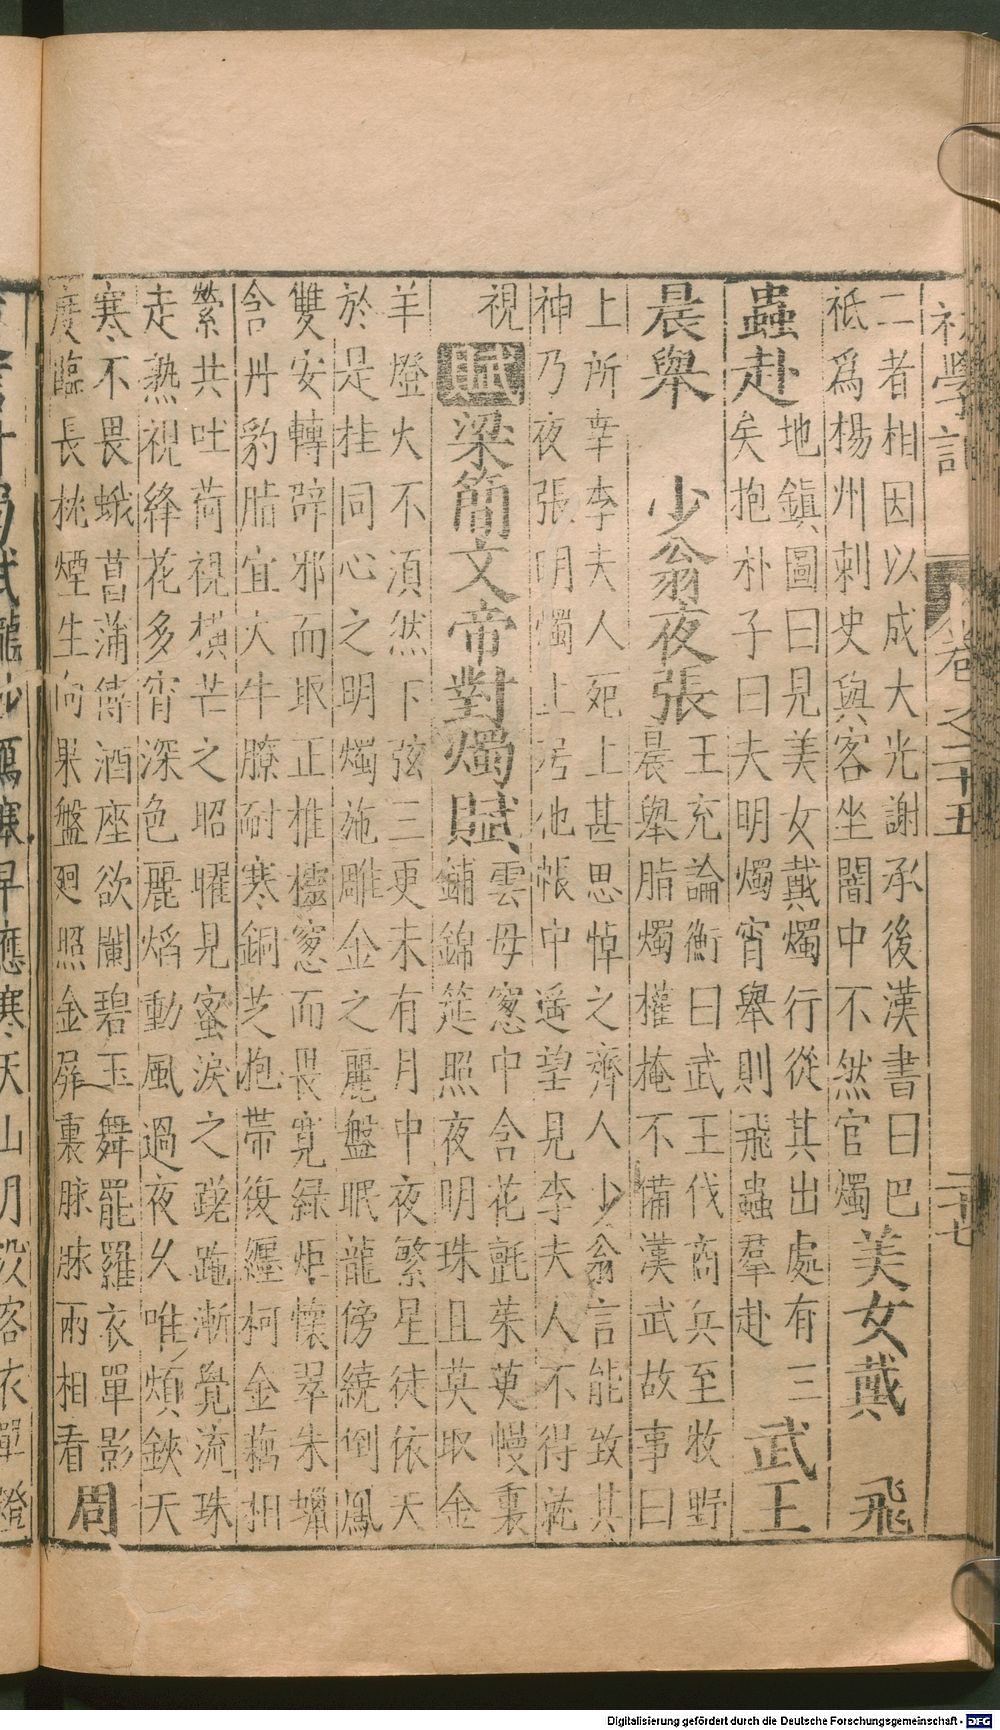 初學記 卷之二十五 二十七
二者相因以成大光謝承後漢書曰巴
祇爲楊州刺史與客坐闇中不然官燭
美女戴 飛
蟲赴
地鎮圖曰見美女戴燭行從其出處有三
矣抱朴子曰夫明燭宵舉則飛蟲羣赴
武王
晨舉 少翁夜張
王充論衡曰武王伐商兵至牧野
晨舉脂燭權掩不備漢武故事曰
上所幸李夫人死上甚思悼之齊人少翁言能致其
神乃夜張明燭上居他帳中遥望見李夫人不得就
視
賦梁簡文帝對燭賦
雲母窻中含花氈茱萸幔裏
鋪錦筵照夜明珠且莫取金
羊燈火不湏然下弦三更未有月中夜繁星徒依天
於是挂同心之明燭施雕金之麗盤眠龍傍繞倒鳳
雙安轉辟邪而取正推櫺窻而畏寛緑炬懷翠朱蠟
含丹豹脂宜火牛膫耐寒銅芝抱帶復纒柯金藕相
縈共吐荷視横芒之昭曜見蜜淚之蹤跎漸覺流珠
走熟視絳花多宵深色麗焰動風過夜久唯煩鋏天
寒不畏蛾菖蒲傳酒座欲闌碧玉舞罷羅衣單影
度臨長桃煙生向果盤廻照金屛裏脉脉兩相看
周
Digitalisierung gefördert durch die Deutsche Forschungsgemeinschaft - DFG